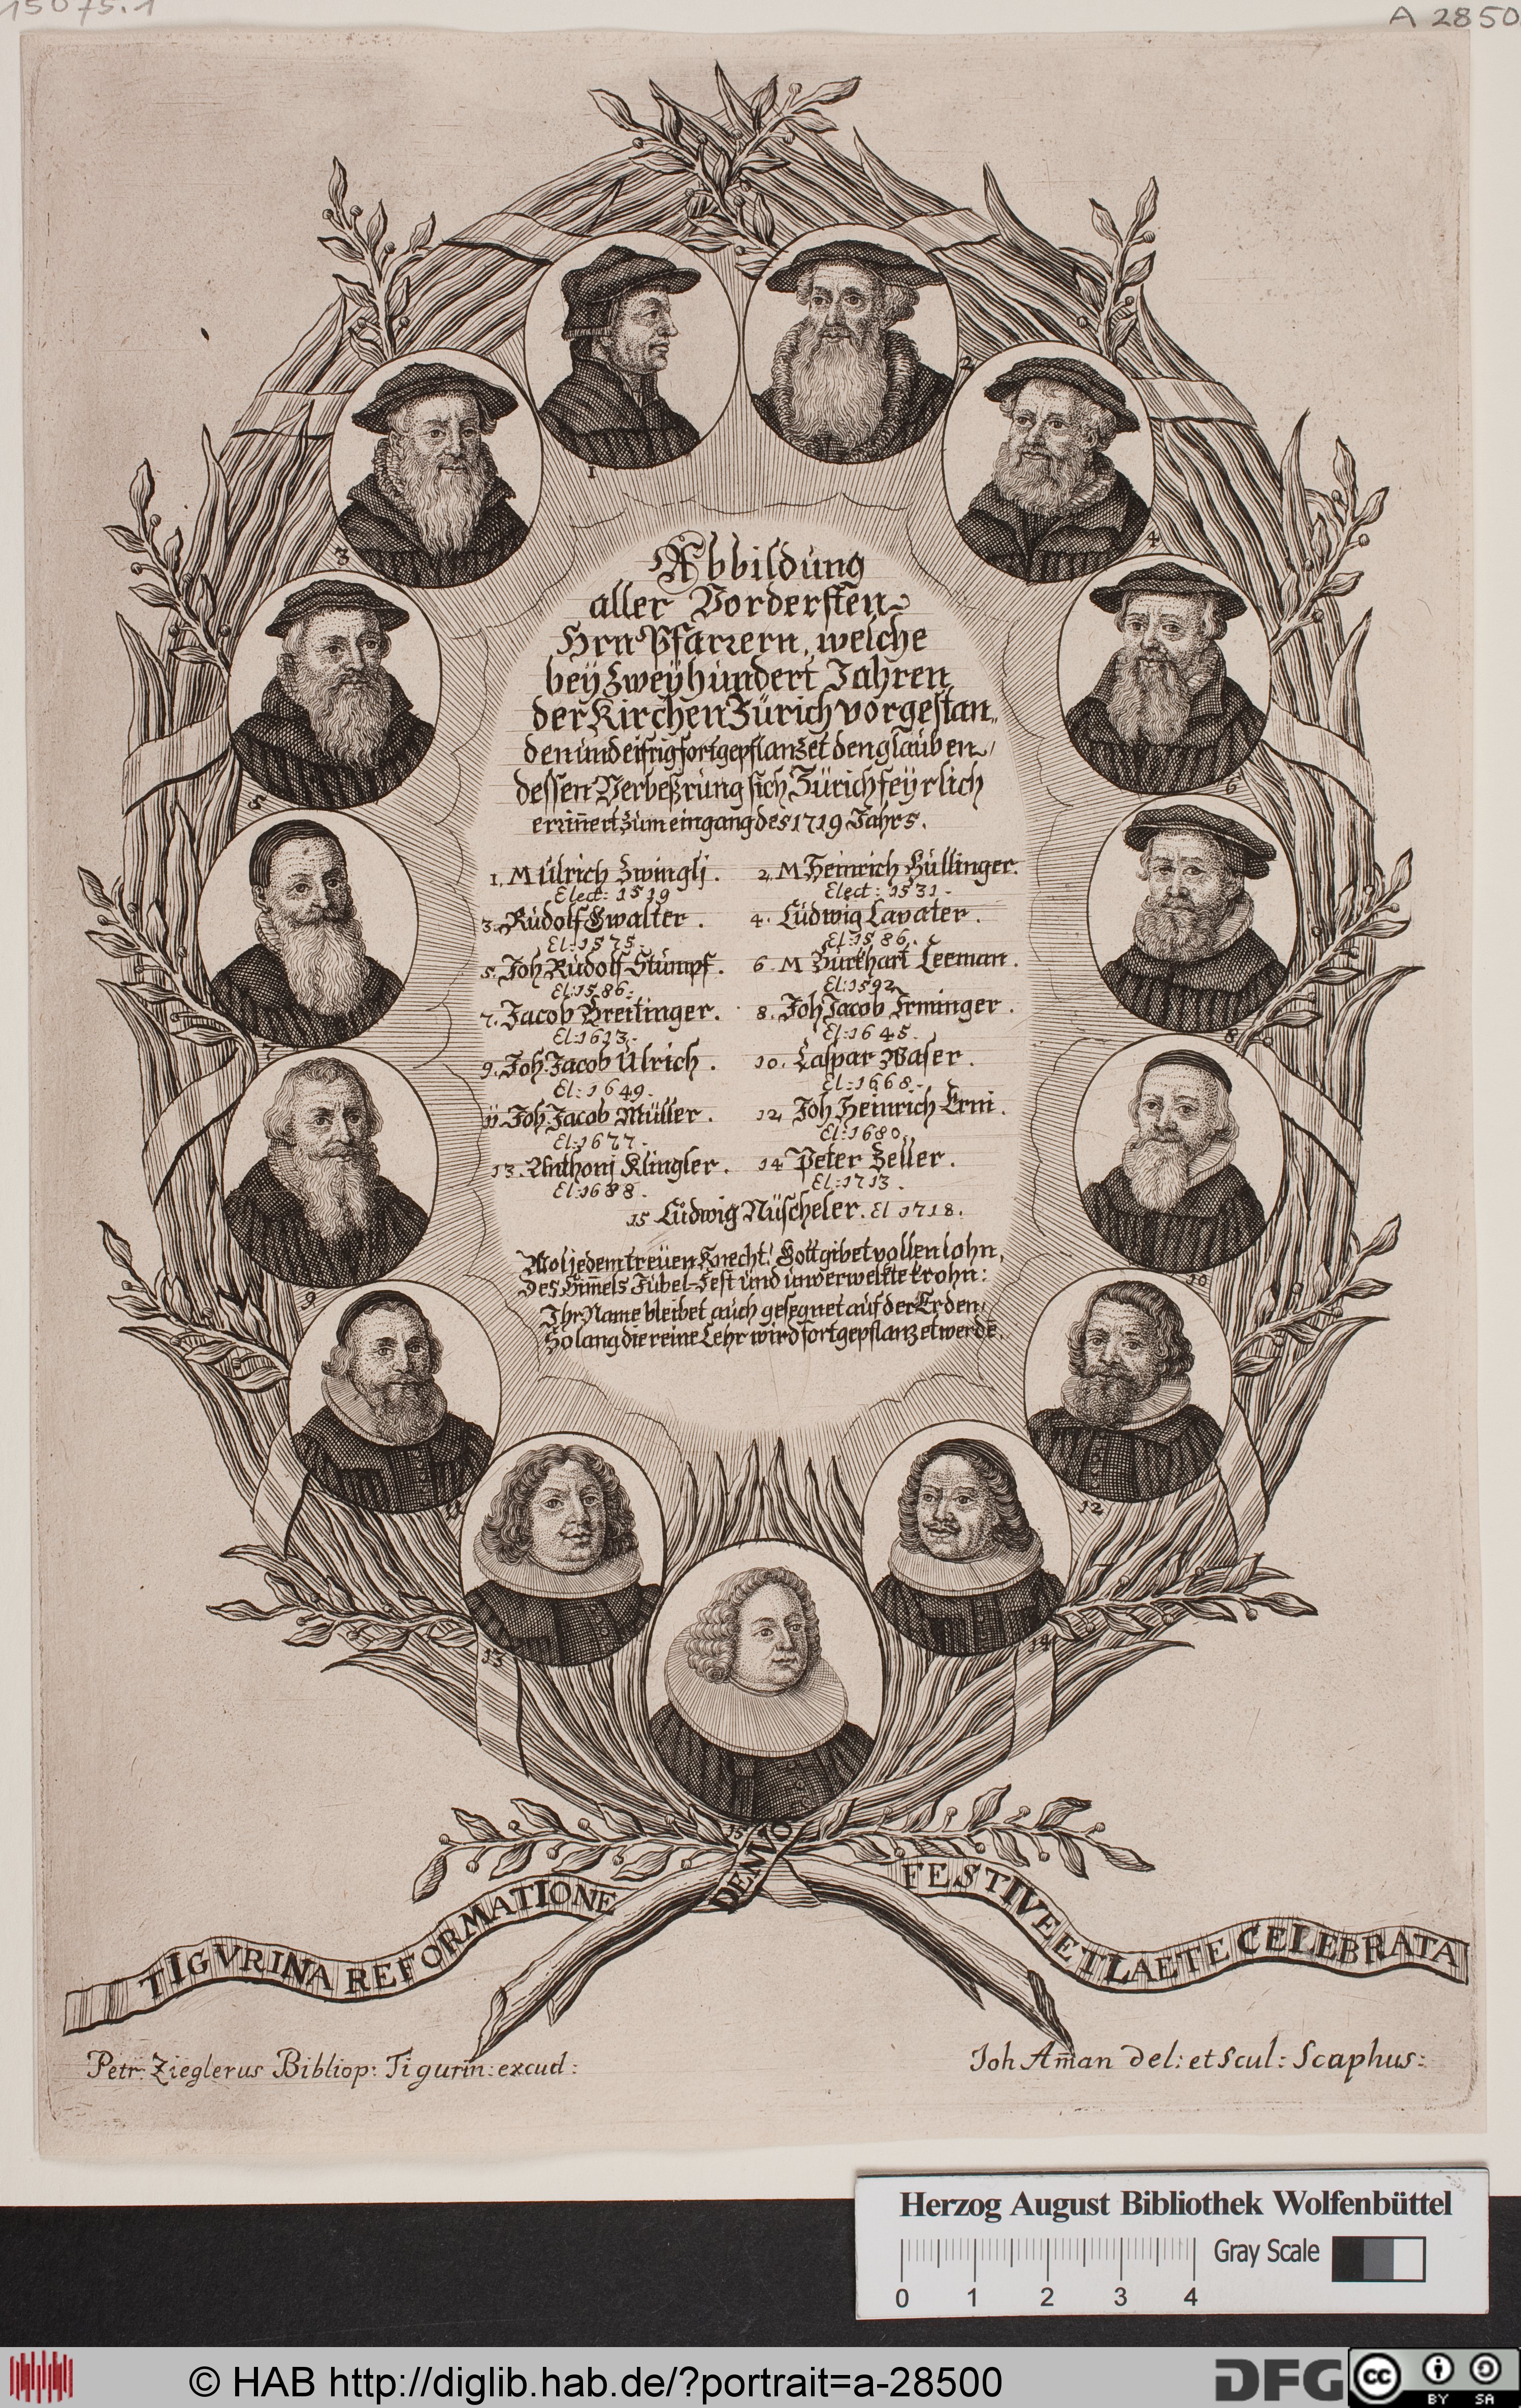 15075.1
A 2850
Abbildung
aller Vordersten
Hrn Pfarrern, welche
bey Zweyhundert Jahren
der Kirchen Zürich vorgestan„
den und eifrig fortgepflanzet den glauben/
dessen Verbeßrung sich Zürich feyrlich
erriñert zum eingang des 1719 Jahrs.
1. M Ulrich Zwinglj. 2. M Heinrich Bullinger.
Elect: 1519 Elect: 1531.
3. Rudolf Gwalter. 4. Ludwig Lavater.
El: 1575. El: 1586.
5. Joh Rudolf Stumpf. 6. M Burkhart Leeman.
El: 1586. El: 1592
7. Jacob Breitinger. 8. Joh Jacob Irminger.
El: 1613. El: 1645.
9. Joh. Jacob Ulrich. 10. Caspar Waser.
El: 1649. El: 1668.
11. Joh. Jacob Müller. 12. Joh Heinrich Erni.
El: 1677. El: 1680.
13. Anthonj Klingler. 14 Peter Zeller.
El: 1688. El: 1713.
15 Ludwig Nüscheler. El 1718.
Wol jedem treüen Knecht! Gott gibet vollen lohn,
Des Himels Jubel-Fest und unverwelkte krohn:
Ihr Name bleibet auch gesegnet auf der Erden/
So lang die reine Lehr wird fortgepflanzet werde.
1
2
3
4
5
6
7
8
9
10
11
12
13
14
15
TIGVRINA REFORMATIONE DENVO FESTIVE ET LAETE CELEBRATA
Petr: Zieglerus Bibliop: Tigurin: excud:
Joh Am̄an del: et Scul: Scaphus:
Herzog August Bibliothek Wolfenbüttel
Gray Scale
0 1 2 3 4
© HAB http://diglib.hab.de/?portrait=a-28500
DFG
cc
BY SA